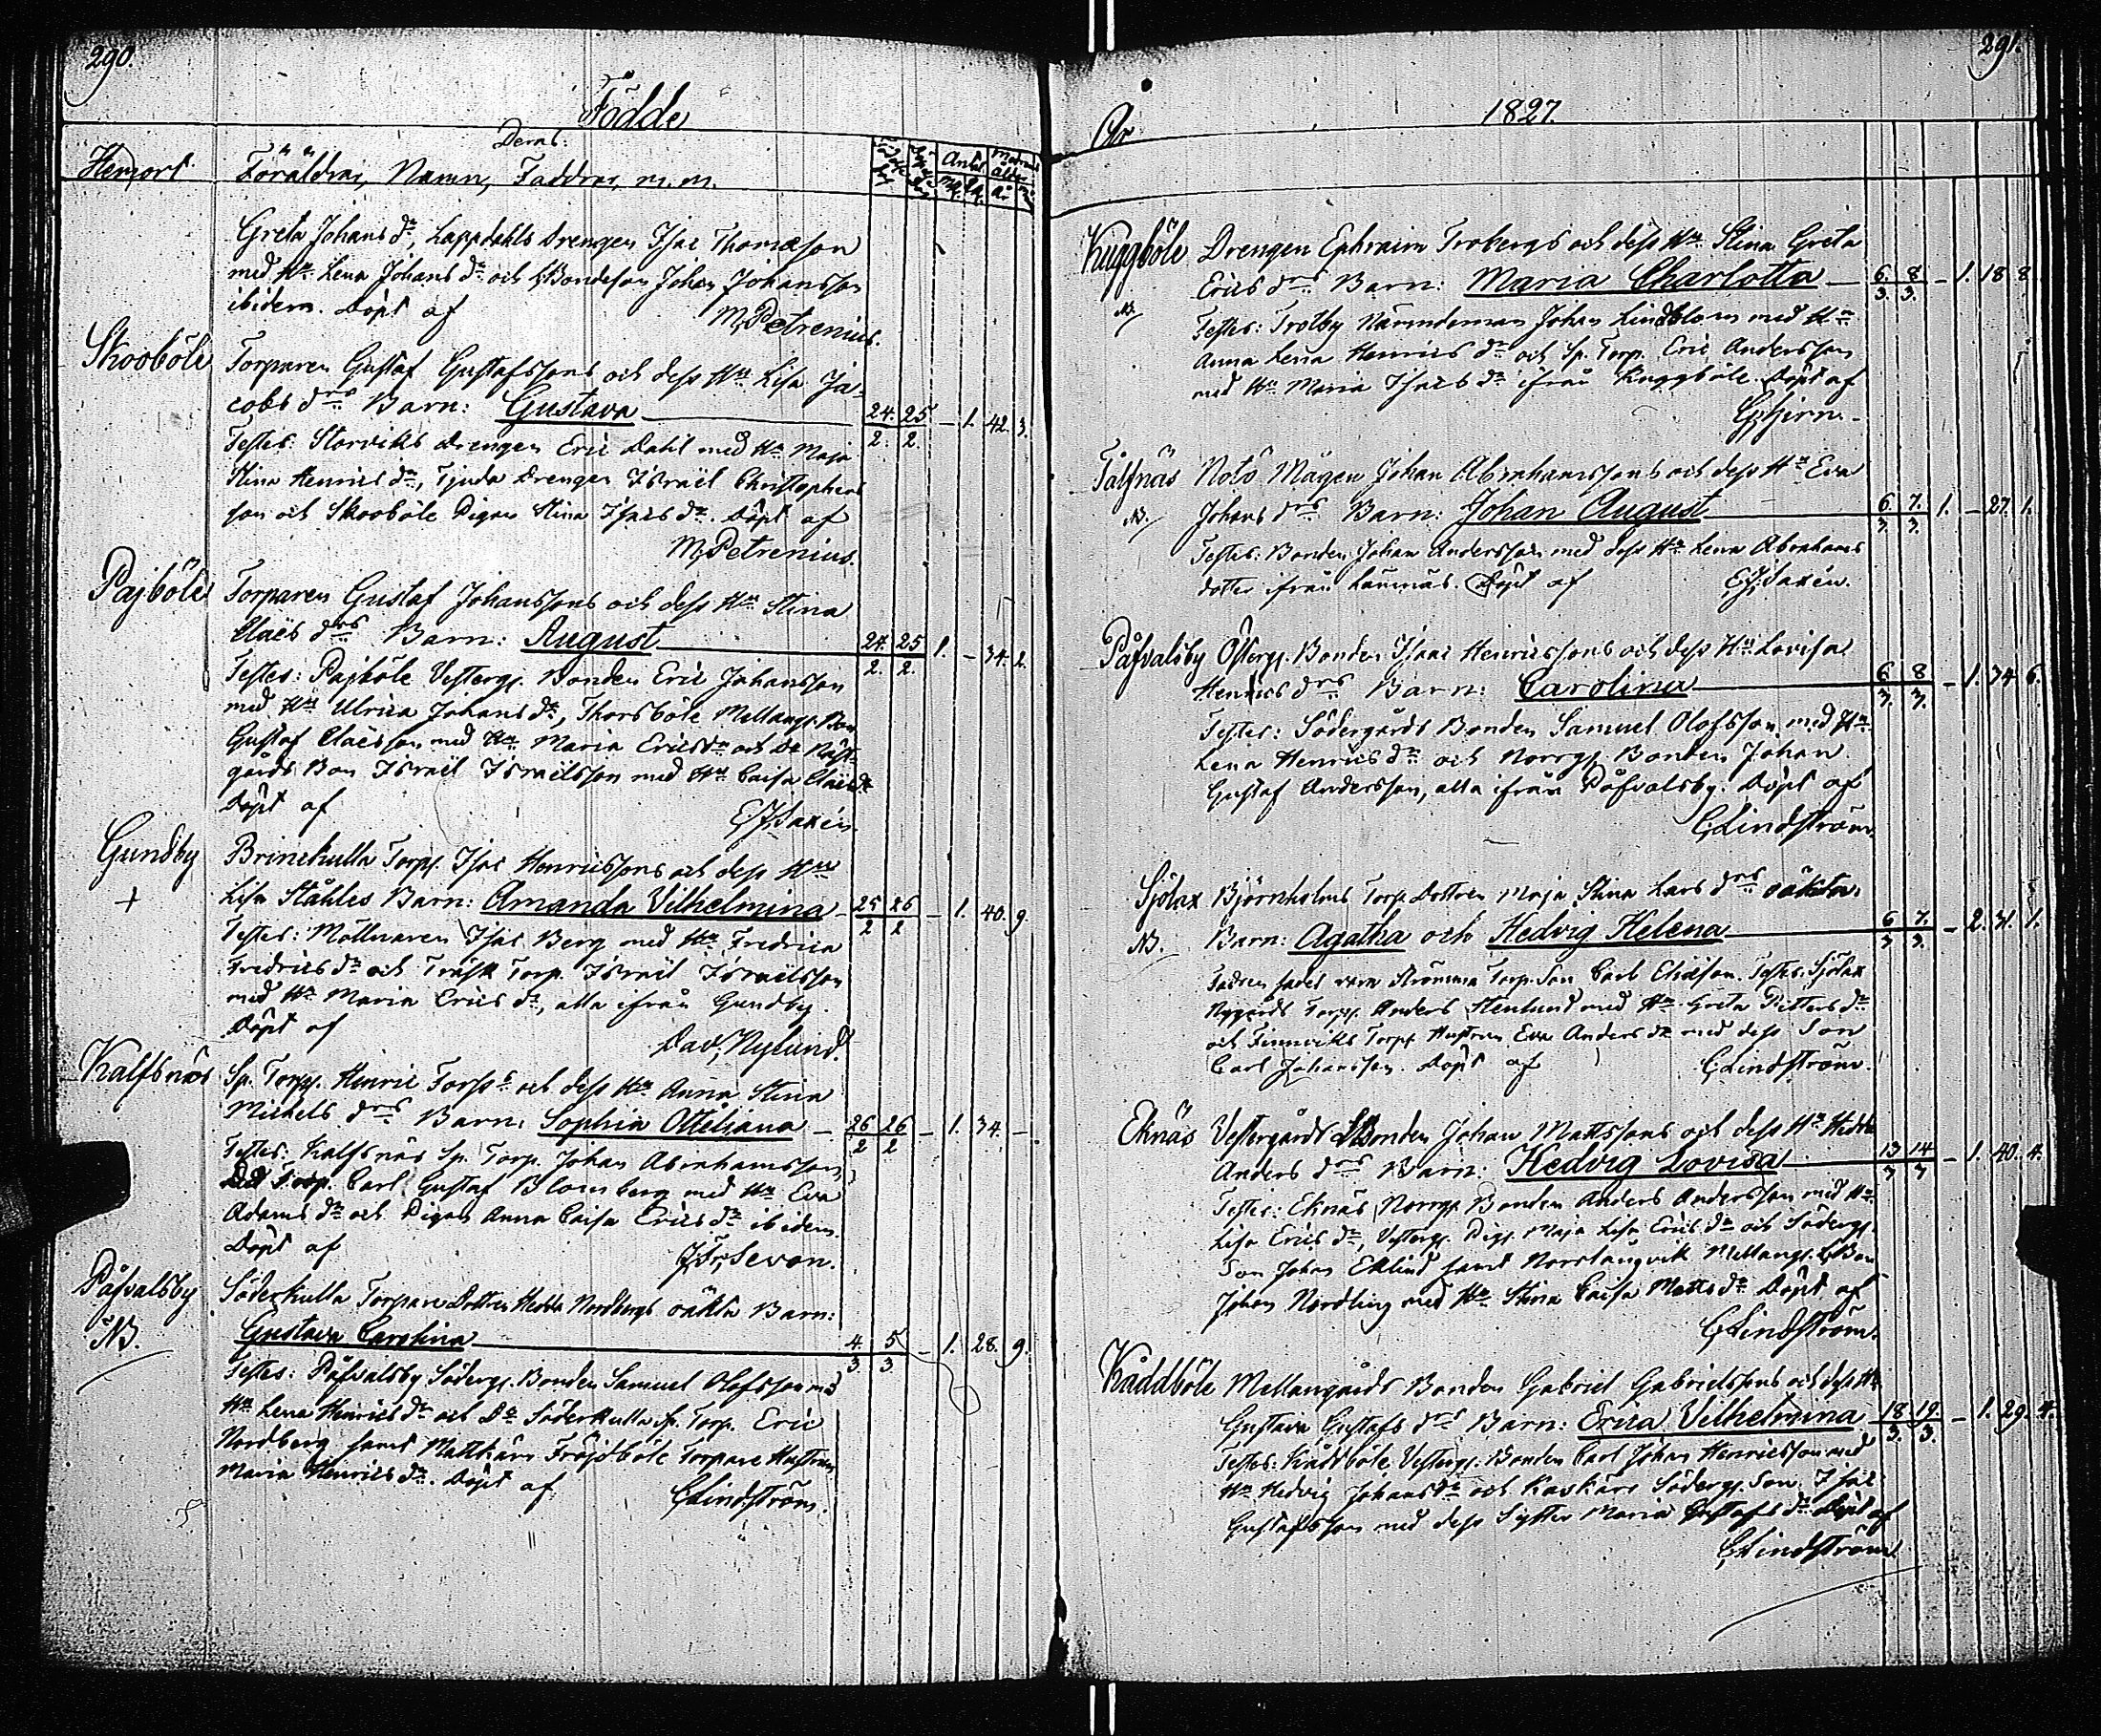 290.
Födde
Hemort
Deras:
Föräldrar, Namn, Faddrar, m. m.
Greta Johans dr, Lappdahls Drengen Isac Thomasson
med Hu Lena Johans dr och Bondeson Johan Johansson
ibidem. Döpt af
M. Petrenius.
Skoböle
Torparen Gustaf Gustafssons och dess Hu Lisa Ja-
cobs drs Barn: Gustava 24/2. 25/2. – 1. 42. 3.
Testes: Storviks drengen Eric Dahl med Hu Maja
Stina Henrics dr, Tjuda Drengen Israël Christophers
son och Skoböle Pigan Stina Isacs dr. Döpt af
M. Petrenius.
Pajböle
Torparen Gustaf Johanssons och dess Hu Stina
Claës drs Barn: August 24/2. 25/2. 1. – 34. 2.
Testes: Pajböle Vesterg. Bonden Eric Johansson
med Hu Ulrica Johans dr, Thorsböle Mellang. Bon
Gustaf Claësson med Hu Maria Ericsdr och
gårds Bon Israël Israëlsson med Hu Caisa Claësdr
Döpt af
C. J. Saxén.
Gundby
+
Brinckulla Torp. Isac Henricssons och dess Hu
Lisa Ståhles Barn: Amanda Vilhelmina 25/2 26/2 – 1. 40. 9.
Testes: Möllnaren Isac Berg med Hu Fredrica
Fredrics dr och Träsk Torp. Israël Israëlsson
med Hu Maria Erics dr, alla ifrån Gundby.
Döpt af
Dav. Nylund.
Kalfsnäs
Sp. Torp. Henric Forss och dess Hu Anna Stina
Michels drs Barn: Sophia Ottiliana 26/2 26/2 – 1. 34. –
Testes: Kalfsnäs Sp. Torp. Johan Abrahamsson,
Torp. Carl Gustaf Blomberg med Hu Eva
Adams dr och Pigan Anna Caisa Erics dr ibidem.
Döpt af
J. Fr. Sevon.
Påfvalsby
NB.
Söderkulla Torpare Dottren Hedda Nordbergs oäkta Barn:
Gustava Carolina 4/3. 5/3. – 1. 28. 9.
Testes: Påfvalsby Söderg. Bonden Samuel Olofsson med
Hu Lena Henrics dr och Do Söderkulla Sp. Torp. Eric
Nordberg samt Mattkärr Fröjdböle Torpare Hustrun
Maria Henrics dr. Döpt af
C. Lindström.
291.
År
1827.
Kuggböle
NB.
Drengen Ephraim Frobergs och dess Hu Stina Greta
Erics drs Barn: Maria Charlotta 6/3. 8/3. – 1. 18 8
Testes: Trotby Nämndeman Johan Lindblom med Hu
Anna Lena Henrics dr och Sp. Torp. Eric Andersson
med Hu Maria Isacs dr ifrån Kuggböle. Döpt af
G. Hjern.
Tålfnäs
NB.
Notö Mågen Johan Abrahamssons och dess Hu Eva
Johans drs Barn: Johan August 6/3. 7/3. 1. – 27. 1.
Testes: Bonden Johan Andersson med dess Hu Lena Abrahams
dotter ifrån Lännäs. Döpt af
C. J. Saxén.
Påfvalsby
Österg. Bonden Isac Henricssons och dess Hu Lovisa
Henrics drs Barn: Carolina 6/3. 8/3. – 1. 34 6.
Testes: Södergårds Bonden Samuel Olofsson med Hu
Lena Henrics dr och Norrg. Bonden Johan
Gustaf Andersson, alla ifrån Påfvalsby. Döpt af
C. Lindström.
Sjölax
NB.
Björnholms Torp. Dottren Maja Stina Lars drs oäkta
Barn: Agatha och Hedvig Helena 6/3 7/3. – 2. 31. 1.
Fadren sades vara Strömma Torp. Son Carl Eliæson. Testes: Sjölax
Nygårds Torp. Anders Stenlund med Hu Greta Petters dr
och Finnviks Torp. Hustrun Eva Anders dr med dess Son
Carl Johansson. Döpt af
C. Lindström.
Eknäs
Vestergårds Bonden Johan Mattssons och dess Hu Hedda
Anders drs Barn: Hedvig Lovisa 13/3 14/3 – 1. 40. 4.
Testes: Eknäs Norrg. Bonden Anders Andersson med Hu
Lisa Erics dr, Vesterg. Pig. Maja Lisa Erics dr och Söderg.
Son Johan Eklind samt Norrlångvik Mellang. Bon
Johan Nordling med Hu Stina Caisa Matts dr Döpt af
C. Lindström.
Kåddböle
Mellangårds Bonden Gabriel Gabrielssons och dess Hu
Gustava Gustafs drs Barn: Erica Vilhelmina 18/3. 19/3. – 1. 29. 4.
Testes: Kåddböle Vesterg. Bonden Carl Johan Henricsson med
Hu Hedvig Johans dr och Kaskärs Söderg. Son Isac
Gustafsson med dess Syster Maria Gustafs dr Döpt af
C. Lindström.